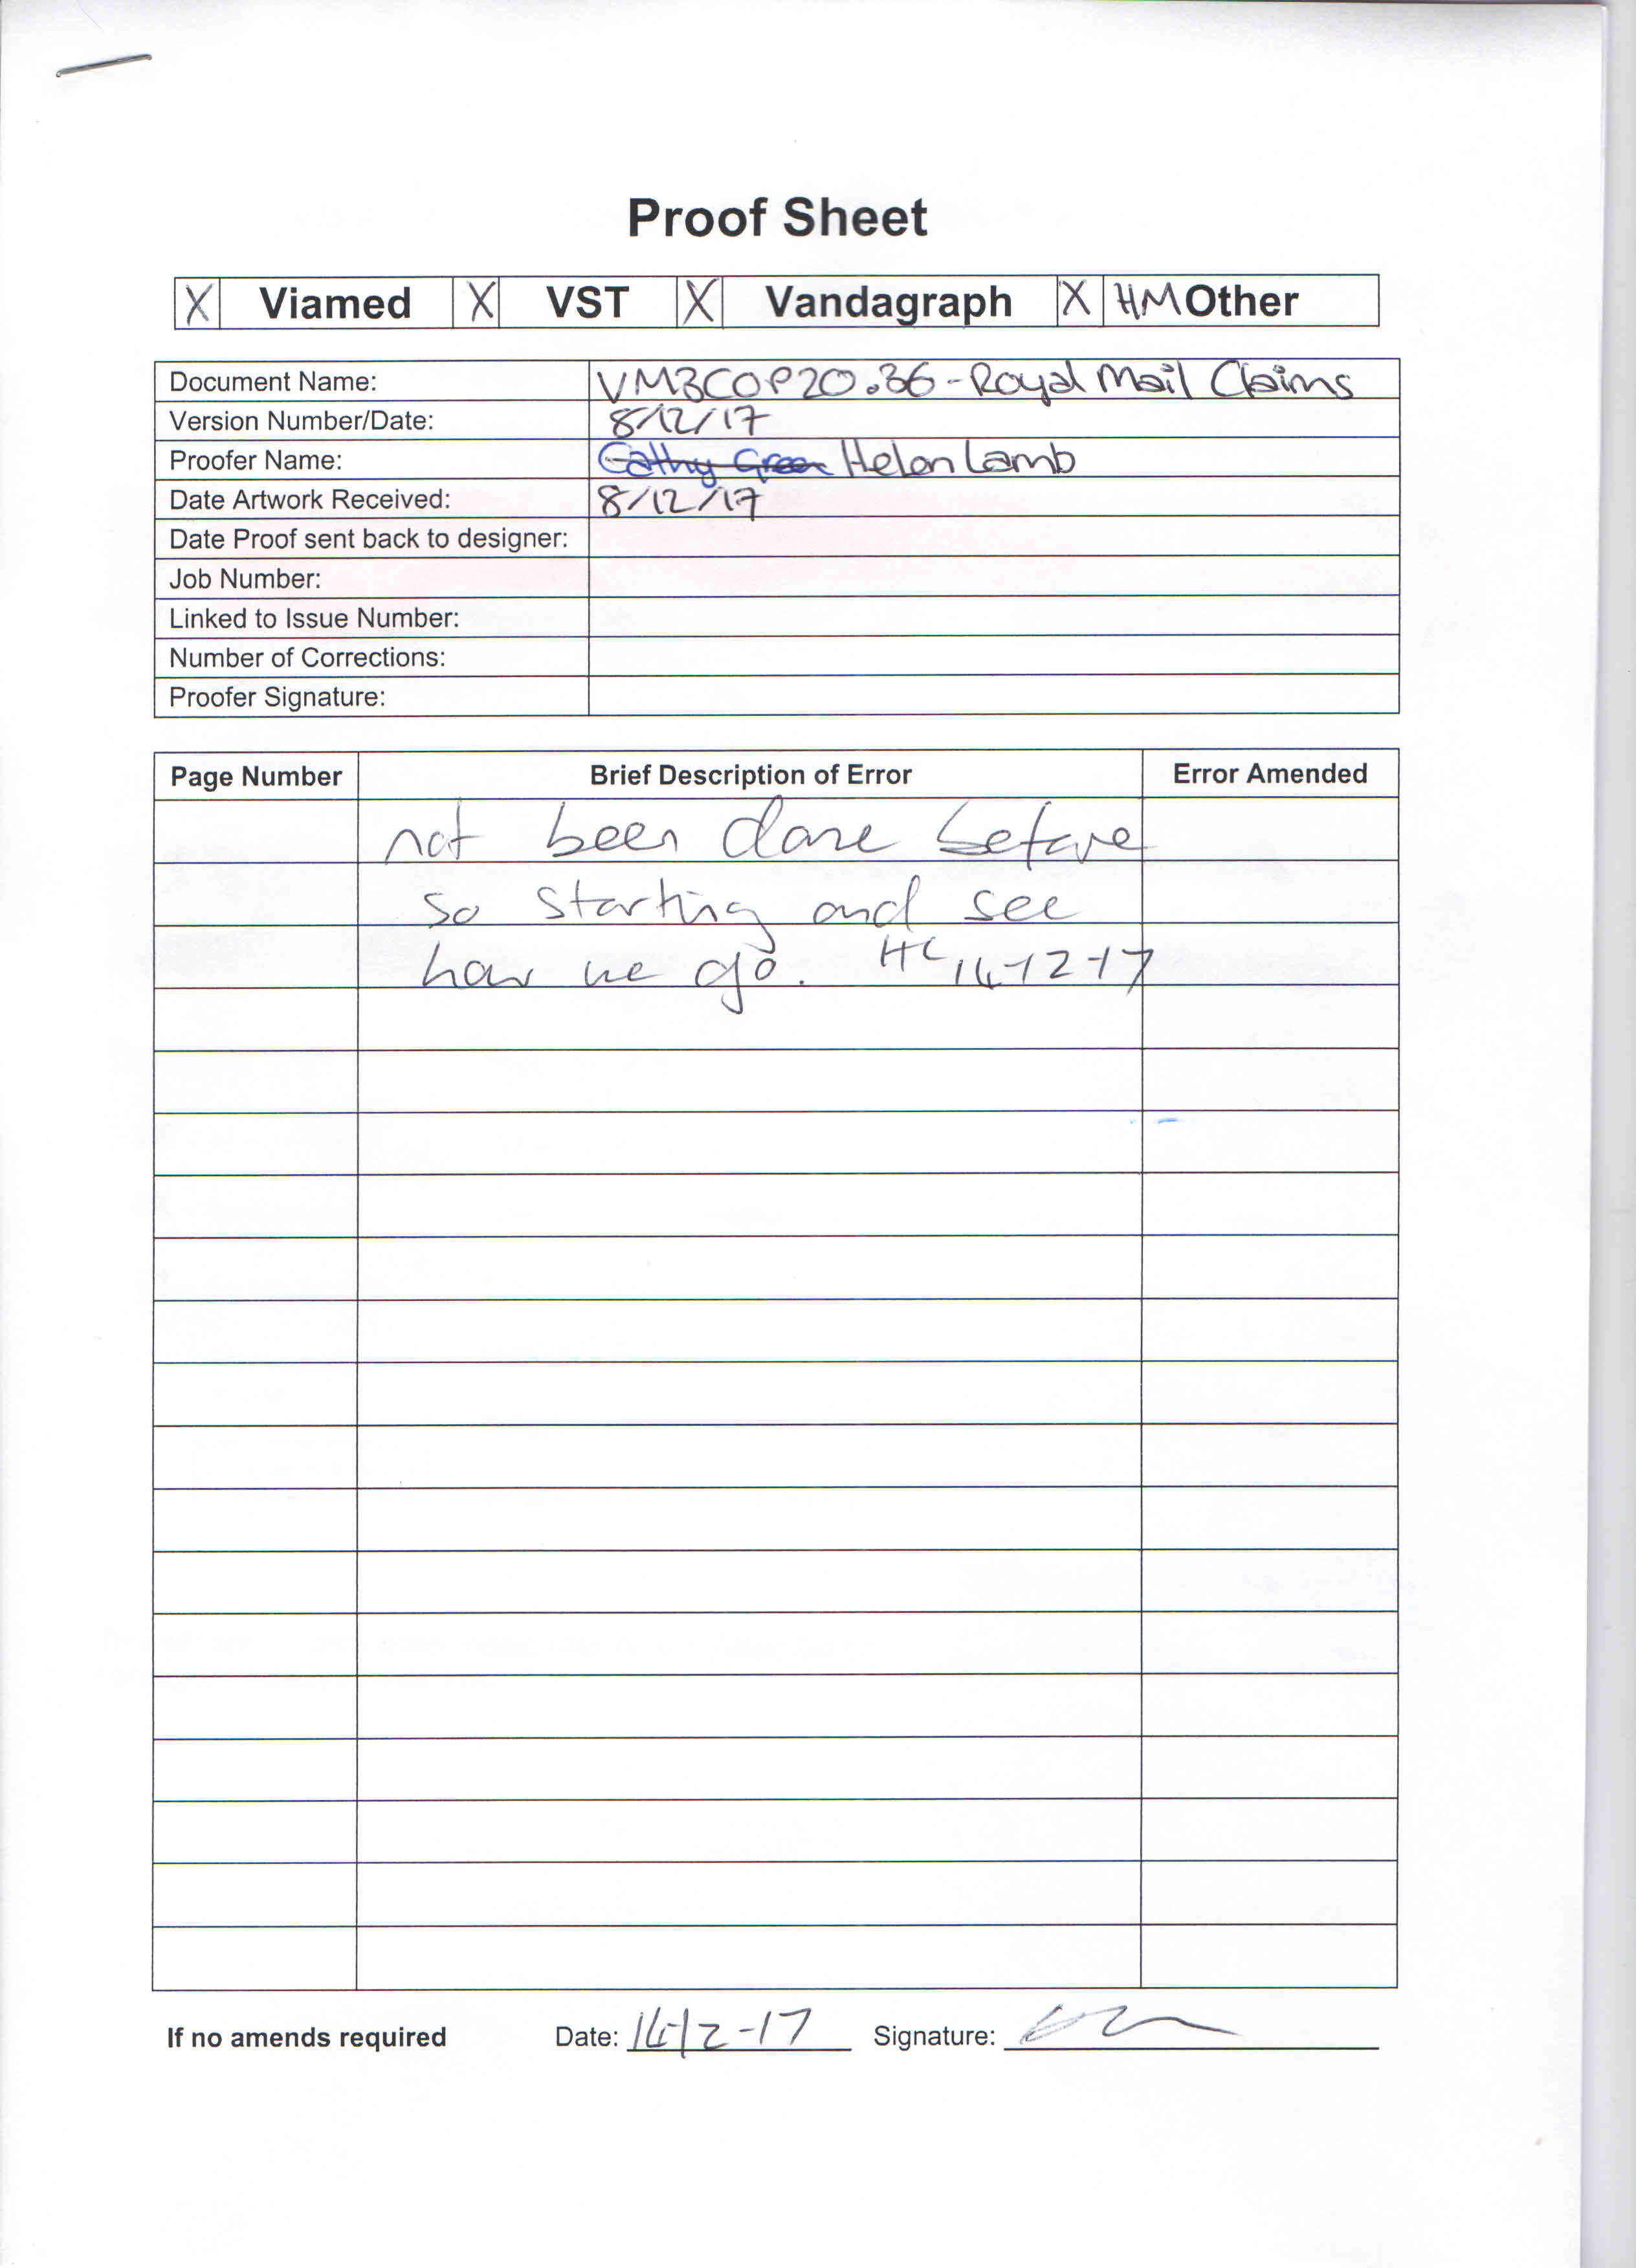 Proof Sheet
X Viamed X VST X Vandagraph X HM Other
Document Name: VM3COP20.36 - Royal Mail Claims
Version Number/Date: 8/12/17
Proofer Name: Cathy Green Helen Lamb
Date Artwork Received: 8/12/17
Date Proof sent back to designer:
Job Number:
Linked to Issue Number:
Number of Corrections:
Proofer Signature:
Page Number Brief Description of Error Error Amended
not been done before
so starting and see
how we go. HL 14-12-17
If no amends required Date: 14-12-17 Signature: